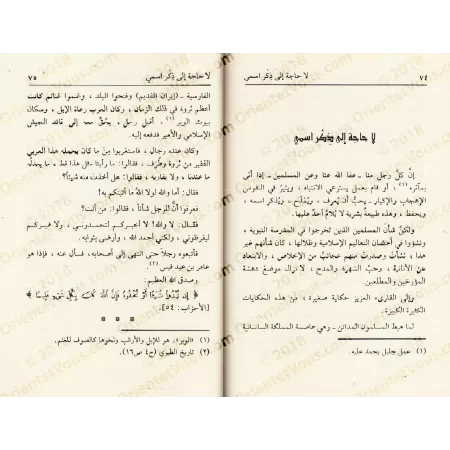 ٧٤ لا حاجة إلى ذِكْر اسمي
لا حاجة إلى ذكر اسمي
إن كلَّ رجل منّا ـ عفا الله عنا وعن المسلمين ـ إذا أتى
بمأثرة (١)، أو قام بعمل يسترعي الانتباه، ويثير في النفوس
الإعجاب والإكبار، يحبّ أن يُعرف، ويُمدَّح، ويُذكر اسمه،
ويحفظ، وهذه طبيعة بشرية لا يُلام أحدٌ عليها.
ولكنَّ شأن المسلمين الذين تخرجوا في المدرسة النبوية،
ونشؤوا في أحضان التعاليم الإسلامية وظلالها، كان شأنهم غير
هذا، نشأت وصدرت منهم عجائبُ من الإخلاص، والابتعاد
عن الأنانية، وحبّ الشهرة والمدح، لا تزال موضع دهشة
المؤرخين والمطلعين.
وإلى القارىء العزيز حكاية صغيرة، من هذه الحكايات
الكثيرة الكبيرة.
لما هبط المسلمون المدائن ـ وهي عاصمة المملكة الساسانية
(١) عمل جليل يحمد عليه.
لا حاجة إلى ذِكْر اسمي ٧٥
الفارسية ـ (إيران القديم) وفتحوا البلد، وغنموا غنائم كانت
أعظم ثروة في ذلك الزمان، وكان العرب رعاة الإبل، وسكان
بيوت الوبر (١)، أقبل رجل بحُقٍّ معه إلى قائد الجيش
الإسلامي والأمير فدفعه إليه.
وكان عنده رجال، فاستغربوا من ما كان يحمله هذا العربي
الفقير من ثروة وطُرَف، فقالوا: ما رأينا مثل هذا قط، ما يعدله
ما عندنا، ولا يقاربه، فقالوا: هل أخذت منه شيئاً؟
فقال: أما والله لولا اللهُ ما أتيتكم به!
فعرفوا أنَّ للرجل شأناً، فقالوا: من أنت؟
فقال: لا والله! لا أخبركم لتحمدوني، ولا غيركم
ليقرظوني، ولكني أحمد الله، وأرضى بثوابه.
فأتبعوه رجلاً حتى انتهى إلى أصحابه، فسأل عنه، فإذا هو
عامر بن عبد قيس (٢).
وصدق الله العظيم:
﴿ إِن تُبْدُوا شَيْئًا أَوْ تُخْفُوهُ فَإِنَّ اللَّهَ كَانَ بِكُلِّ شَيْءٍ عَلِيمًا ﴾
[الأحزاب: ٥٤].
* * *
(١) «الوبر»: هو للإبل والأرانب ونحوها كالصوف للغنم.
(٢) تاريخ الطبري (ج٤ ص١٦).
OrientetVous.com © 2018